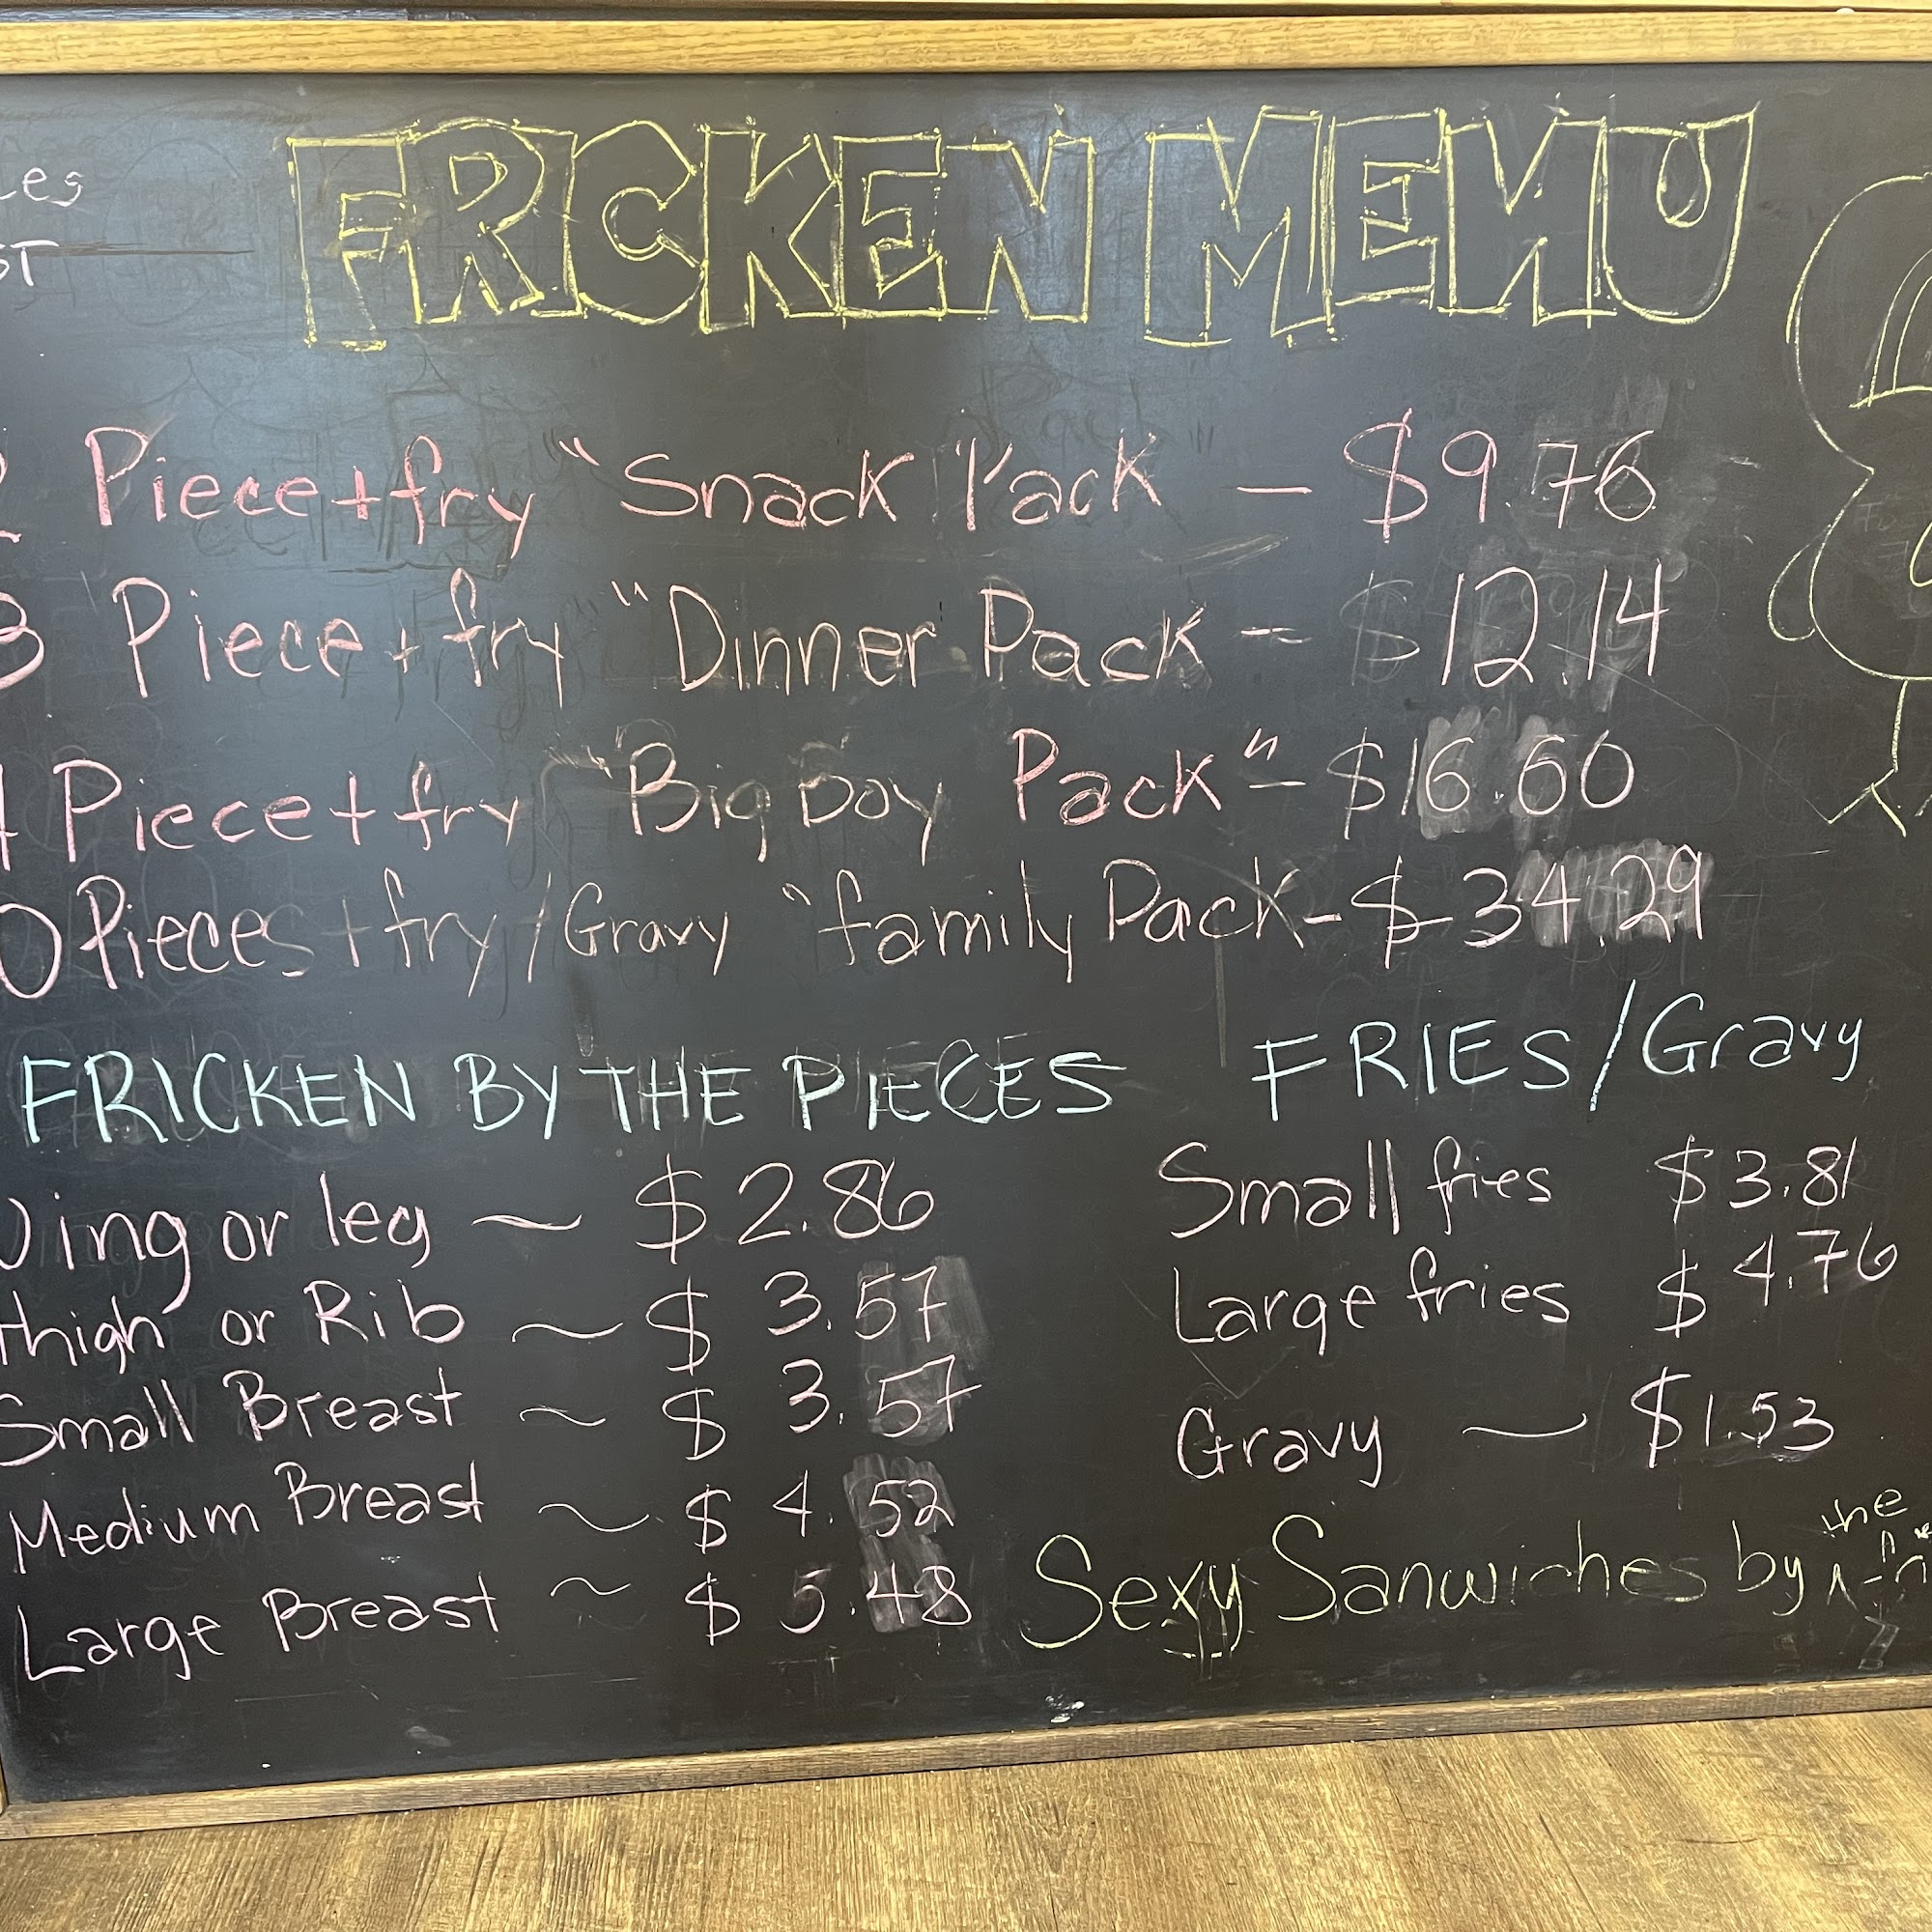 FRICKEN MENU
2 Piece + fry "Snack Pack" — $9.76
3 Piece + fry "Dinner Pack - $12.14
4 Piece + fry "Big Boy Pack" - $16.60
0 Pieces + fry / Gravy "family Pack - $34.29
FRICKEN BY THE PIECES
Wing or leg ~ $2.86
thigh or Rib ~ $3.57
Small Breast ~ $3.57
Medium Breast ~ $4.52
Large Breast ~ $5.48
FRIES/Gravy
Small fries $3.81
Large fries $4.76
Gravy ~ $1.53
Sexy Sanwiches by the